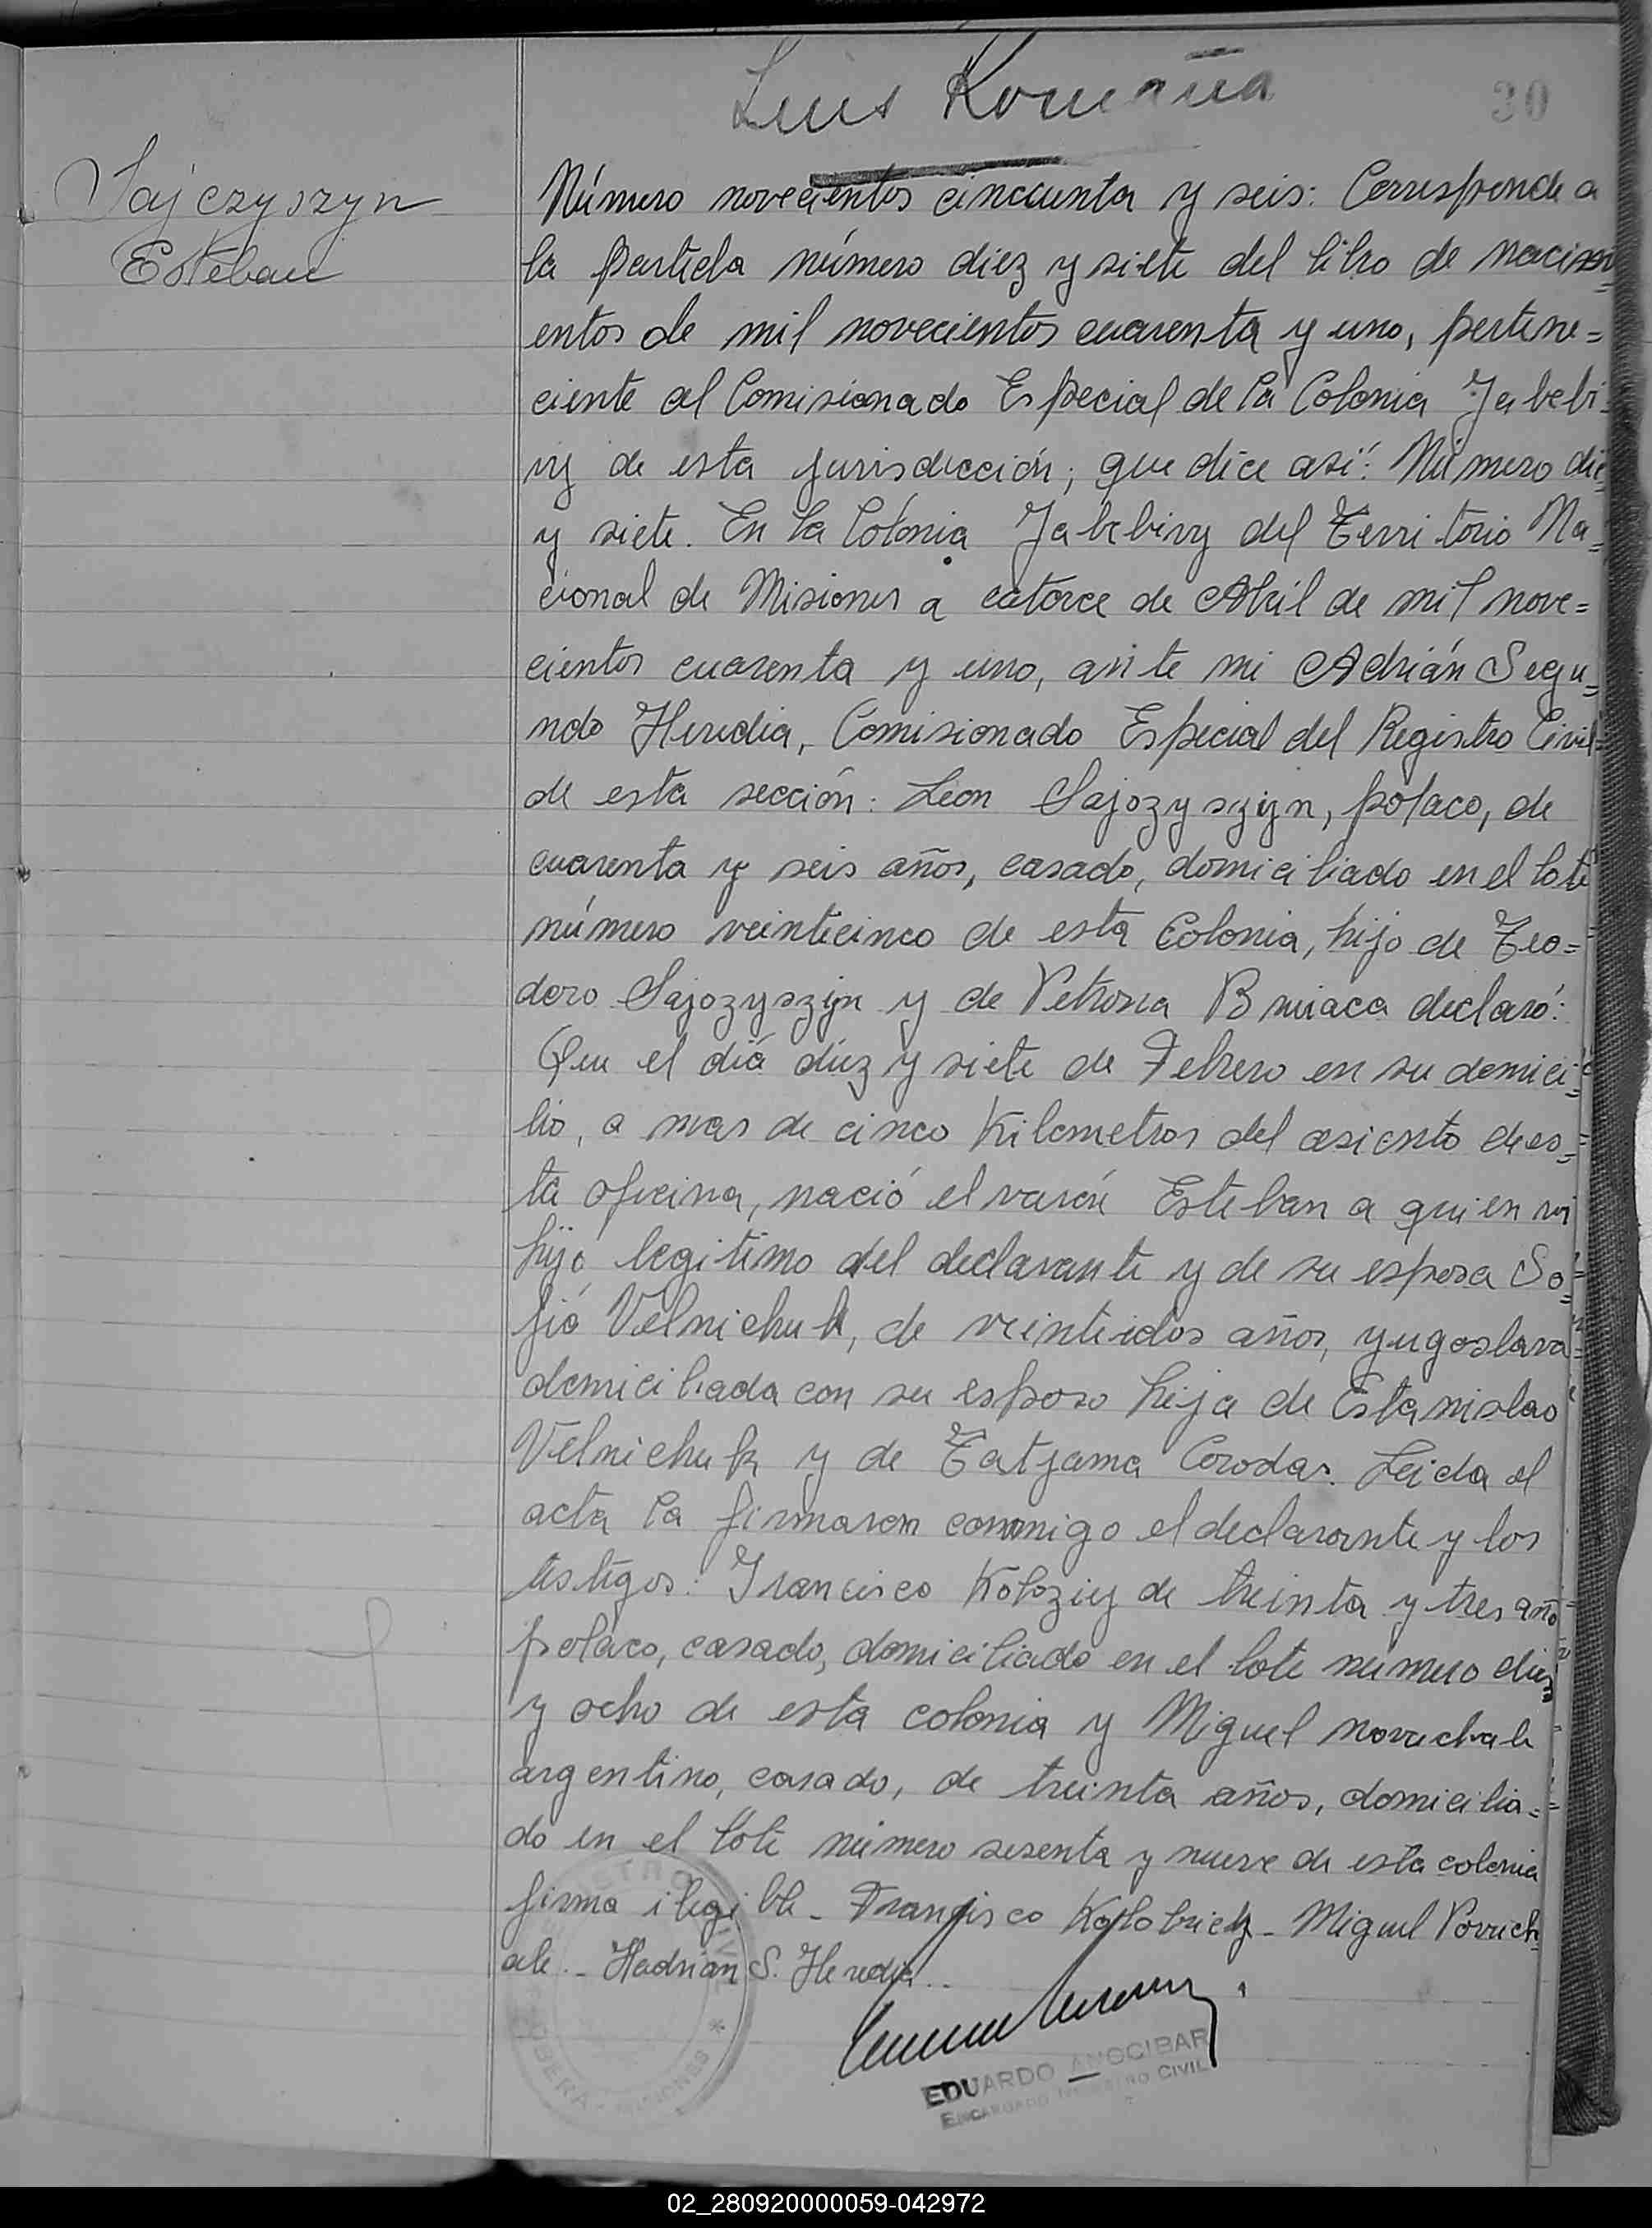 Luis Romaña
30
Sajczyszyn
Esteban
Número novecientos cincuenta y seis: Corresponde a
la partida número diez y siete del libro de nacimi=
entos de mil novecientos cuarenta y uno, pertene=
ciente al Comisionado Especial de la Colonia Yabebi=
ry de esta jurisdicción; que dice así: Número diez
y siete. En la Colonia Yabebiry del Territorio Na=
cional de Misiones a catorce de Abril de mil nove=
cientos cuarenta y uno, ante mi Adrián Segu=
ndo Heredia, Comisionado Especial del Registro Civil=
de esta sección: León Sajozyszyn, polaco, de
cuarenta y seis años, casado, domiciliado en el lote
número veinticinco de esta Colonia, hijo de Teo=
doro Sajozyszyn y de Petrona declaró:
Que el día diez y siete de Febrero en su domici=
lio, a mas de cinco Kilometros del asiento de es=
ta oficina, nació el varón Esteban a quien vi
hijo legitimo del declarante y de su esposa So=
fía Velnichuk, de veintidos años, yugoslava=
domiciliada con su esposo hija de Estanislao
Velnichuk y de Tatjama Corodas. Leida el
acta la firmaron conmigo el declarante y los
testigos: Francisco Koloziej de treinta y tres año
polaco, casado, domiciliado en el lote número diez
y ocho de esta colonia y Miguel
argentino, casado, de treinta años, domicilia=
do en el lote número sesenta y nueve de esta colonia
firma ilegible - Francisco - Miguel Povuch
ale - Hadrián S. Heredia..
EDUARDO ANOCIBAR
ENCARGADO REGISTRO CIVIL
OBERA - MISIONES *
02_280920000059-042972